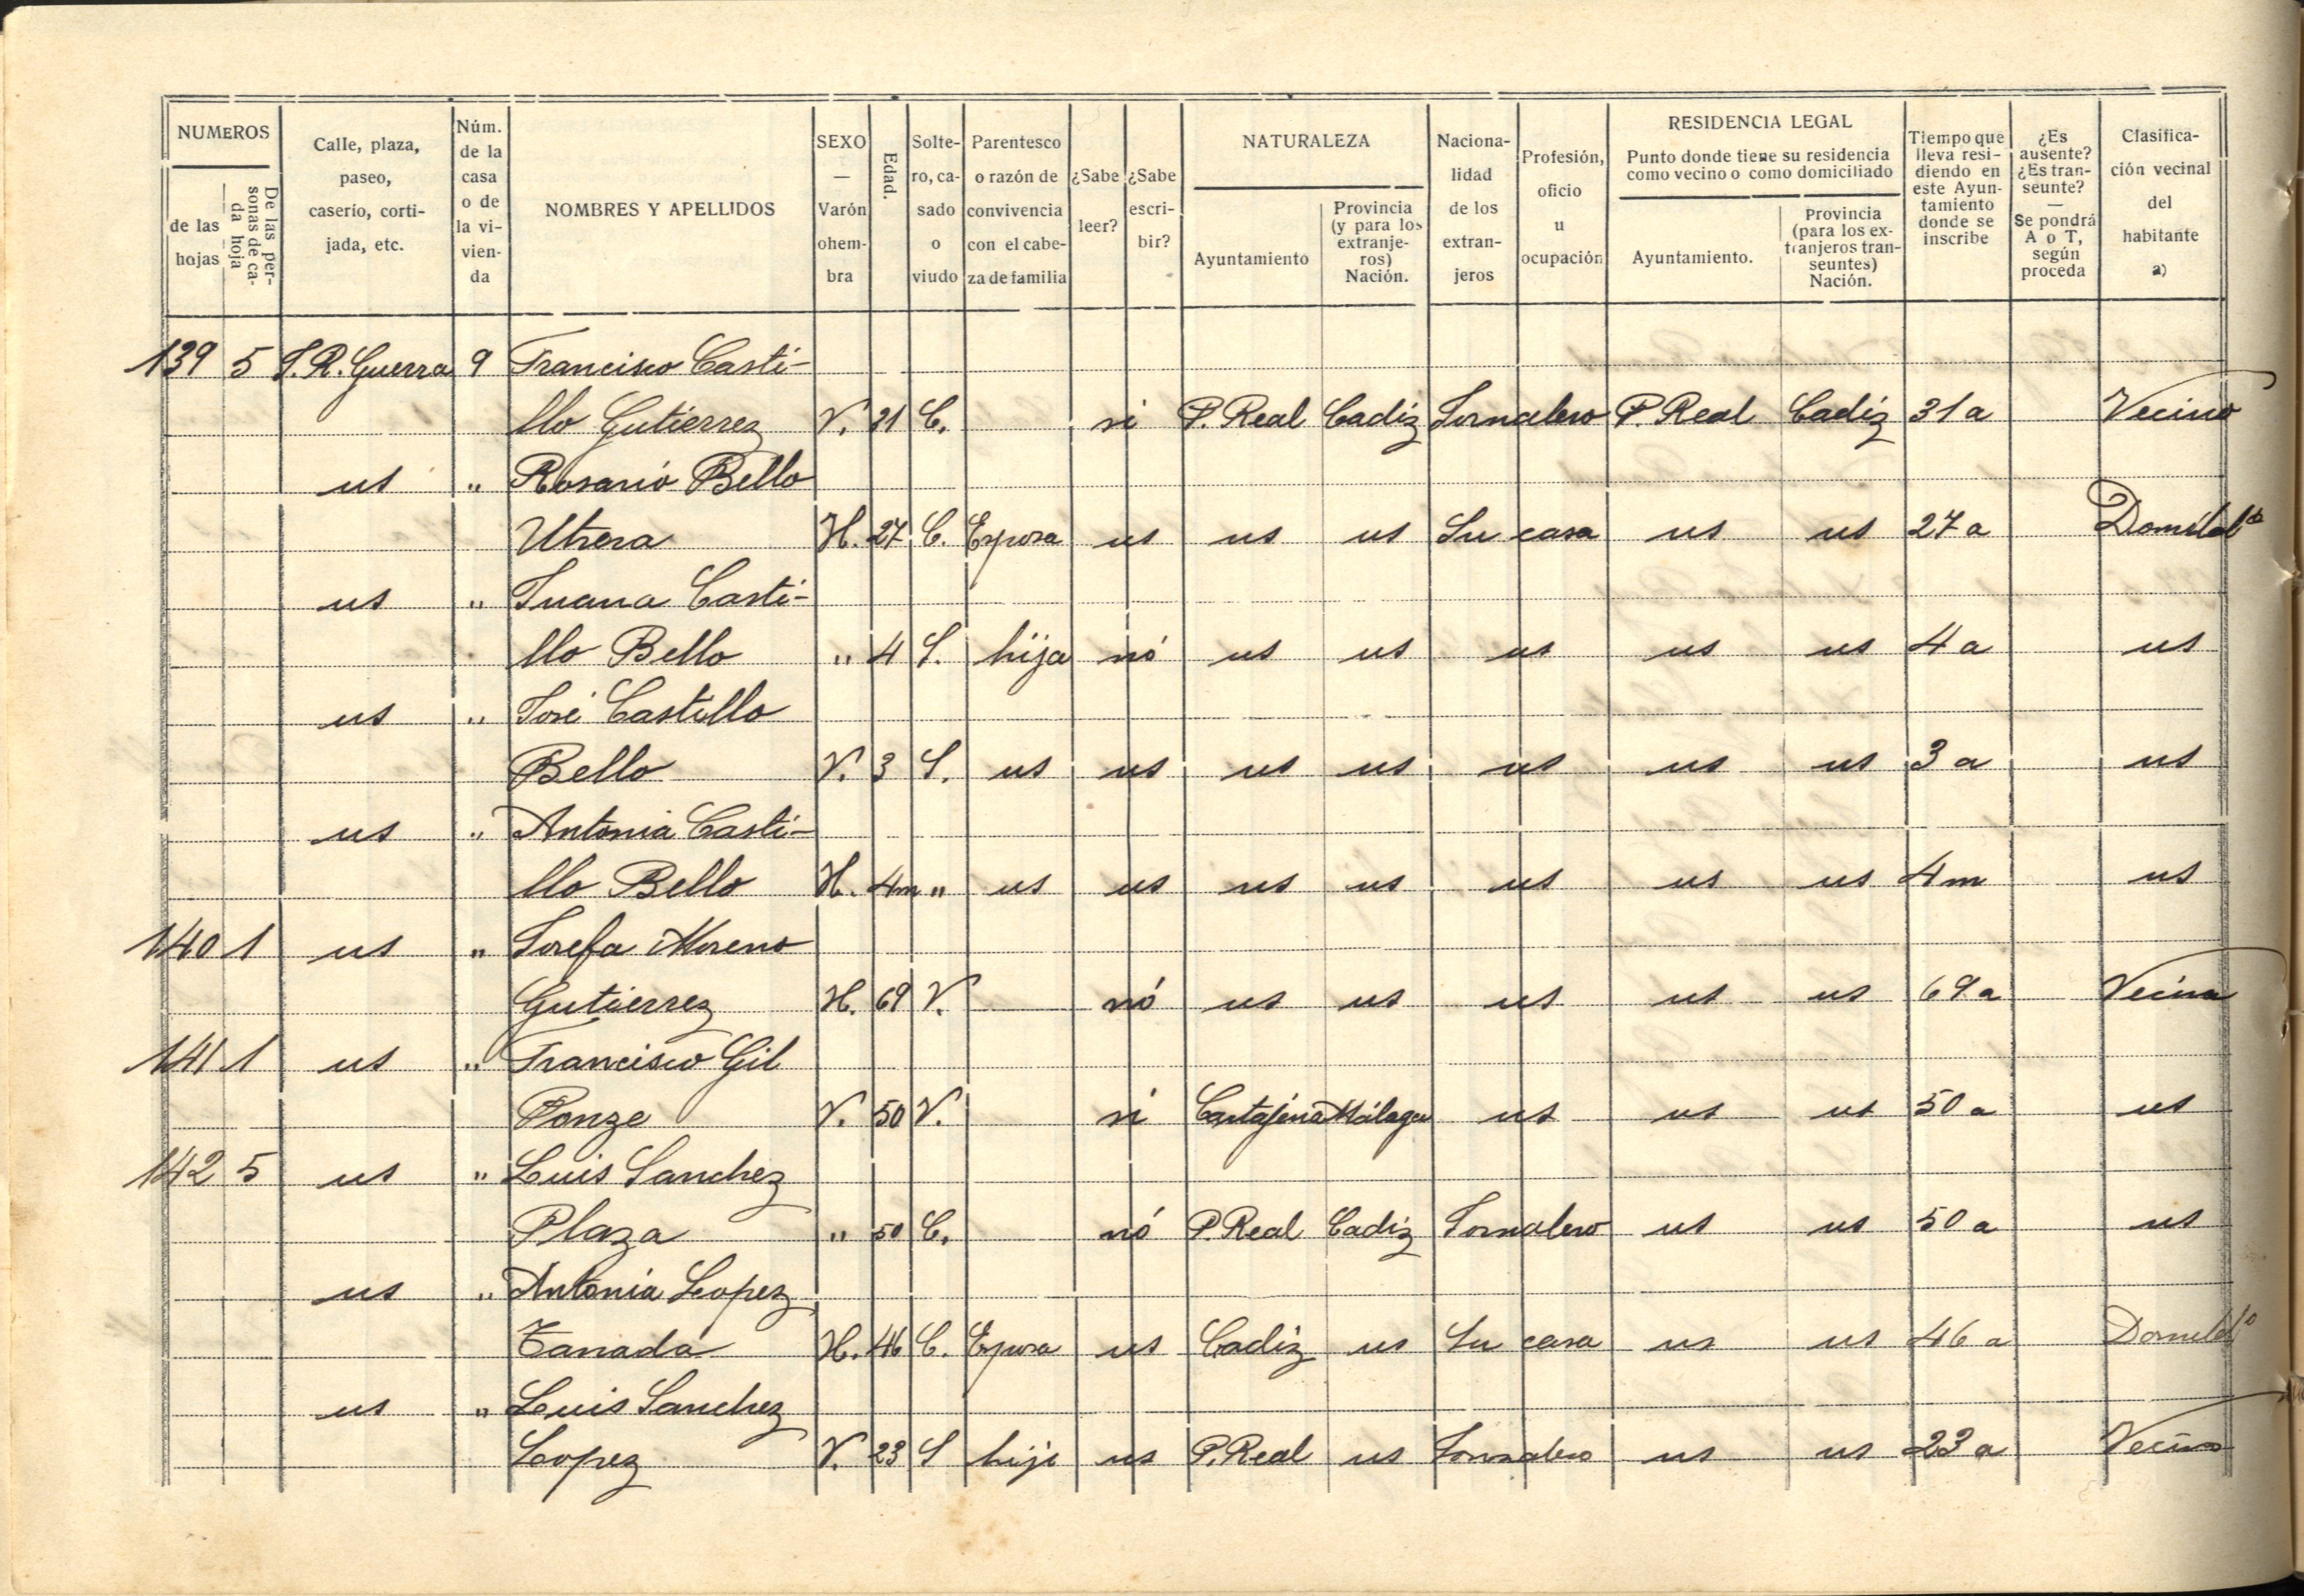 NUMEROS
de las hojas
De las personas de cada hoja
Calle, plaza, paseo, caserío, cortijada, etc.
Núm. de la casa o de la vivienda
NOMBRES Y APELLIDOS
SEXO — Varón ohembra
Edad.
Soltero, casado o viudo
Parentesco o razón de convivencia con el cabeza de familia
¿Sabe leer?
¿Sabe escribir?
NATURALEZA
Ayuntamiento
Provincia (y para los extranjeros) Nación.
Nacionalidad de los extranjeros
Profesión, oficio u ocupación
RESIDENCIA LEGAL
Punto donde tiene su residencia como vecino o como domiciliado
Ayuntamiento.
Provincia (para los extranjeros transeuntes) Nación.
Tiempo que lleva residiendo en este Ayuntamiento donde se inscribe
¿Es ausente? ¿Es transeunte? — Se pondrá A o T, según proceda
Clasificación vecinal del habitante a)
139 5 S. R. Guerra 9 Francisco Casti-
llo Gutierrez V. 31 C. si P. Real Cadiz Jornalero P. Real Cadiz 31 a Vecino
us " Rosario Bello
Utrera H. 27 C. Esposa us us us Su casa us us 27 a
us " Juana Casti-
llo Bello " 4 S. hija nó us us us us us 4 a us
us " José Castillo
Bello V. 3 S. us us us us us us us 3 a us
us " Antonia Casti-
llo Bello H. 4m " us us us us us us us 4 m us
140 1 us " Josefa Moreno
Gutierrez H. 69 V. nó us us us us us 69 a Vecina
141 1 us " Francisco Gil
Ponze V. 50 V. si Cartajena Málaga us us us 50 a us
142 5 us " Luis Sanchez
Plaza " 50 C. nó P. Real Cadiz Jornalero us us 50 a us
us " Antonia Lopez
H. 46 C. Esposa us Cadiz us Su casa us us 46 a
us " Luis Sanchez
Lopez V. 23 S hijo us P. Real us Jornalero us us 23 a Vecino